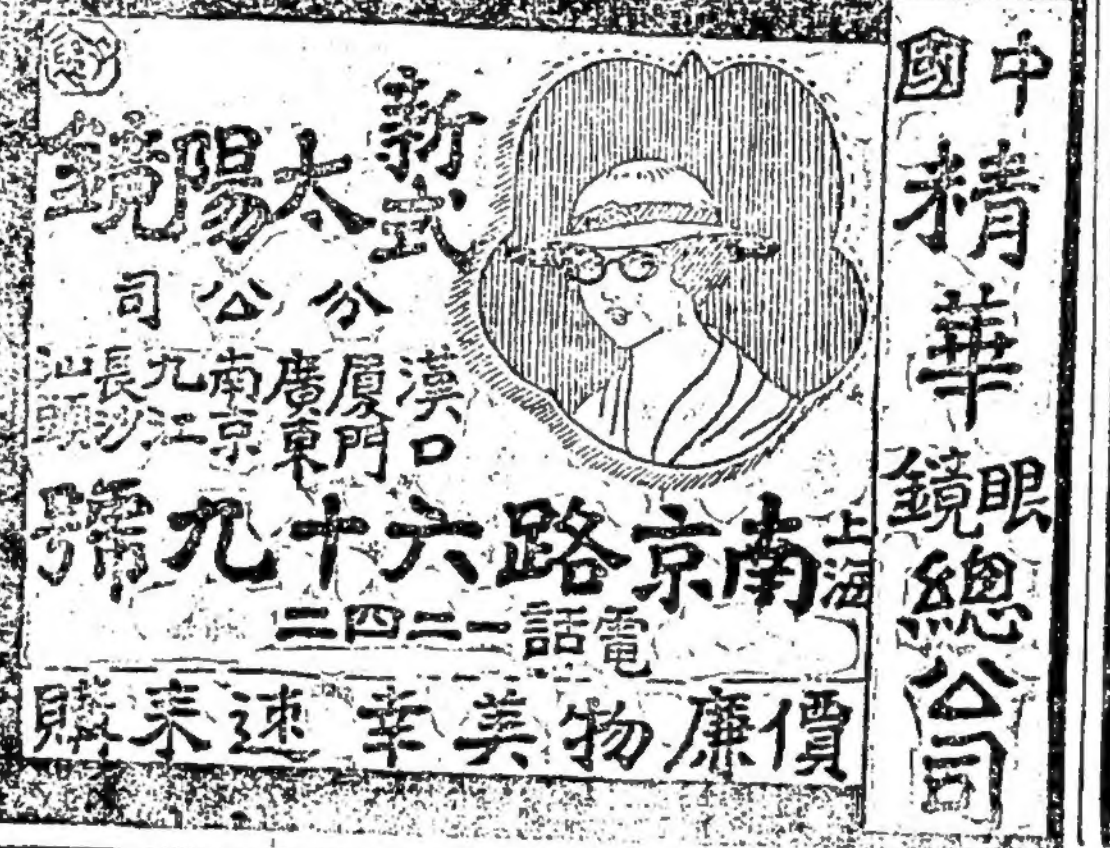 中國
精華
眼鏡
總公司
新式
太陽鏡
分公司
漢口
廈門
廣東
南京
九江
長沙
汕頭
上海
南京路六十九號
電話一二四二
價廉物美幸速來購